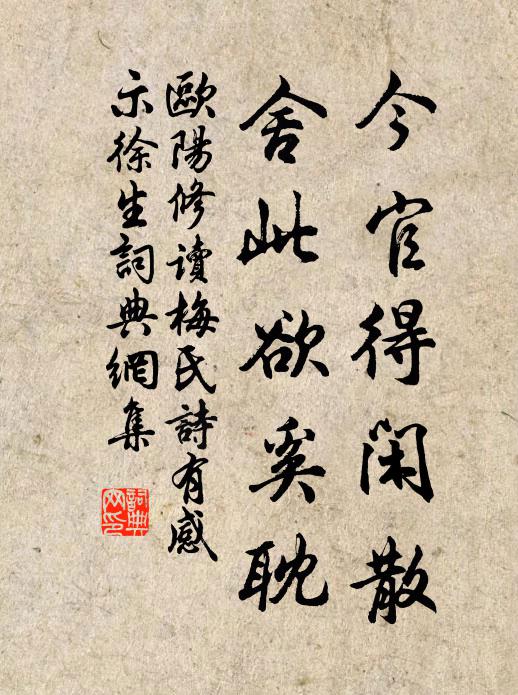 今官得閑散
舍此欲奚耽
歐陽修讀梅氏詩有感
示徐生詞典網集
詞典
网印